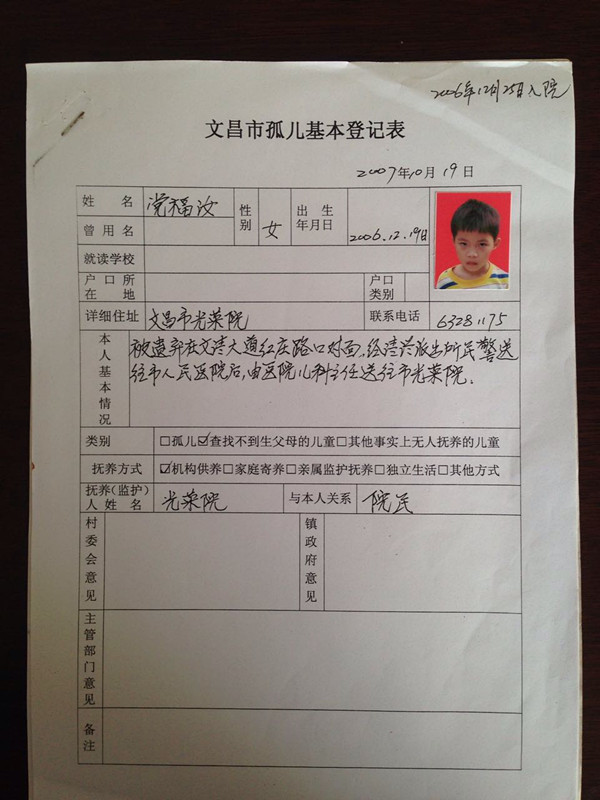 2006年12月25日入院
文昌市孤儿基本登记表
2007年10月19日
姓名 党福汝 性别 女 出生年月日 2006.12.19日
曾用名
就读学校
户口所在地 户口类别
详细住址 文昌市光荣院 联系电话 63281175
本人基本情况
被遗弃在文清大道红庄路口对面,经清兰派出所民警送
往市人民医院后,由医院儿科主任送往市光荣院。
类别 □孤儿☑查找不到生父母的儿童□其他事实上无人抚养的儿童
抚养方式 ☑机构供养□家庭寄养□亲属监护抚养□独立生活□其他方式
抚养(监护)人姓名 光荣院 与本人关系 院民
村委会意见 镇政府意见
主管部门意见
备注